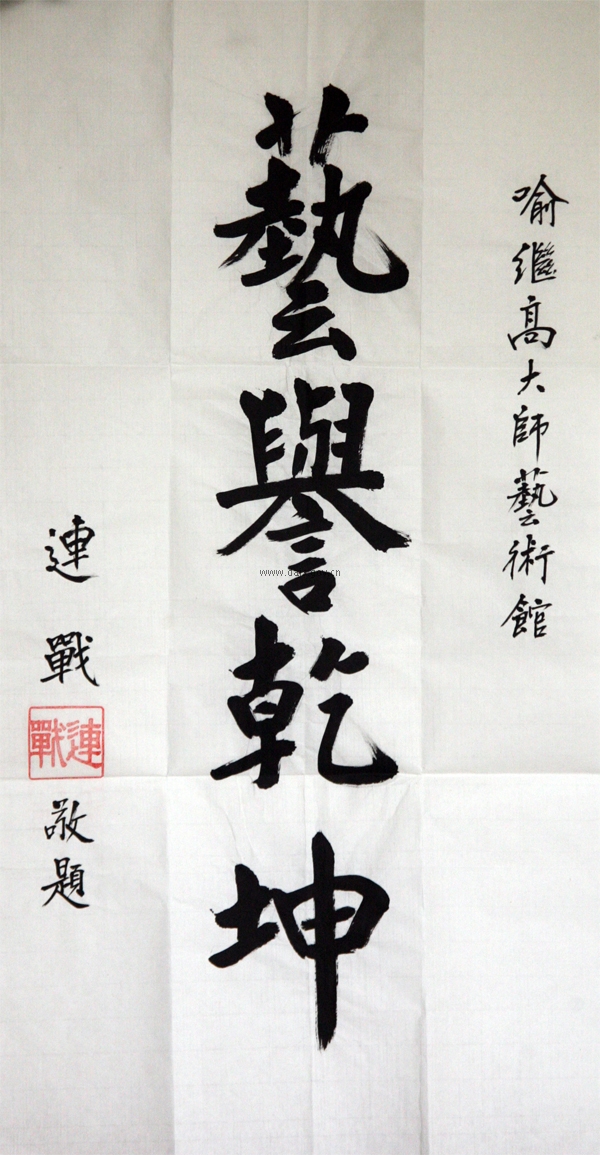 喻繼高大師藝術館
藝譽乾坤
連戰
敬題
連戰